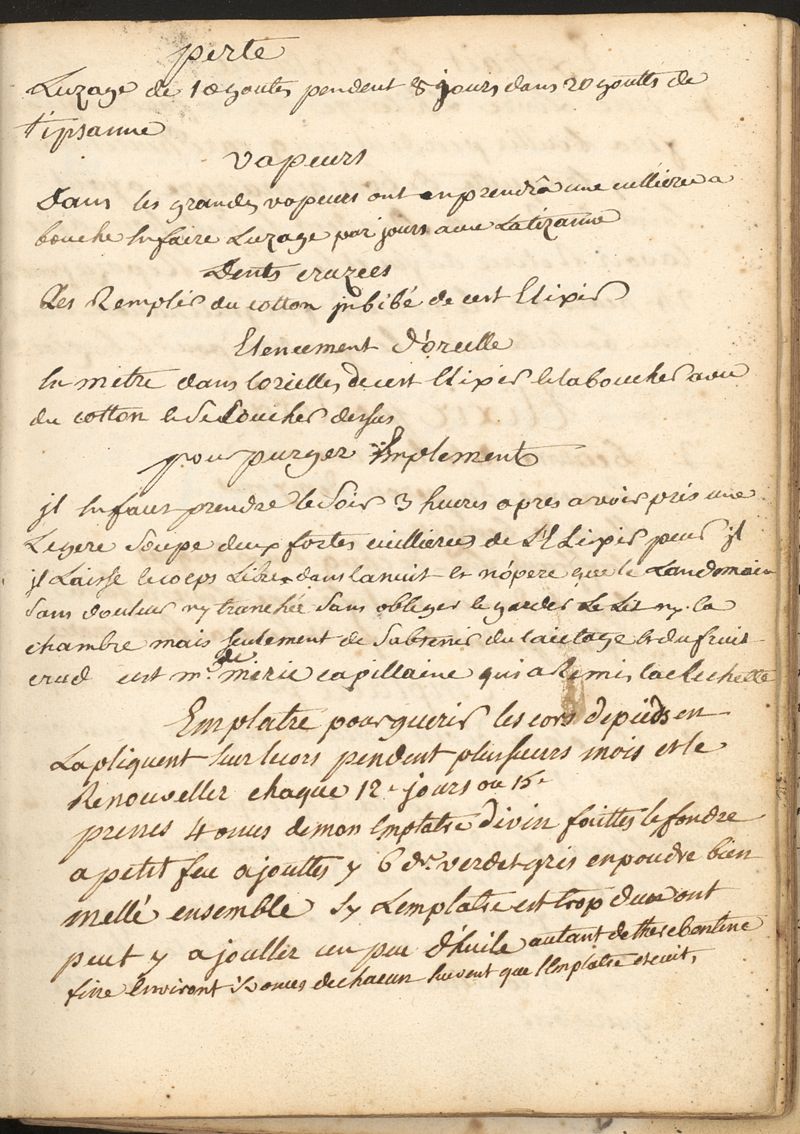 perte
Luzage de 10 goutes pendent 8 jours dans 20 goutts de
tipsanne
vapeurs
Dans les grandes vapeurs ont en prendrâ une cuilliere a
bouche En faire Luzage par jours avec La tizanne
Dents cruzées
Les Remplir du cotton jnbibé de cest Elixir
Elencement d'oreille
En mettre dans loreilles de cest Elixir et la boucher avec
du cotton et Se Coucher dessus
pour purger Simplement
jl En faut prendre le Soir 3 heures apres avoir pris une
Legere Soupe deux fortes cuillieres de L'Elixir pur jl
jl Laisse le corps Libre dans la nuit et n'opere que le Landomain
Sans douleur ny tranchée Sans obliger le garder Le Lit ny la
chambre mais Seulement de Sabstenir du laictage et du fruit
crud cest mr de merie capillaine qui a Remis la Recheette
Emplatre pour guerir les cors de pieds en
Lapliquent Sur le cors pendent plusieurs mois et le
Renouveller chaque 12e jours ou 15e
prenes 4 onces de mon Emplatre divin faittes le fondre
a petit feu ajouttes y 6 dr. verdet gris en poudre bien
mellé ensemble Sy Lemplatre est trop dure ont
peut y ajoutter un peu d'huile autant de therebentine
fine Environt ½ onces de chacun Suivent que l'Emplatre est cuit,